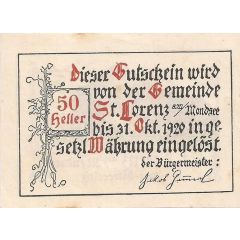 Dieser Gutschein wird
von der Gemeinde
50
Heller
St. Lorenz a/Mondsee
bis 31. Okt. 1920 in ge-
setzl Währung eingelöst.
der Bürgermeister:
Jakob